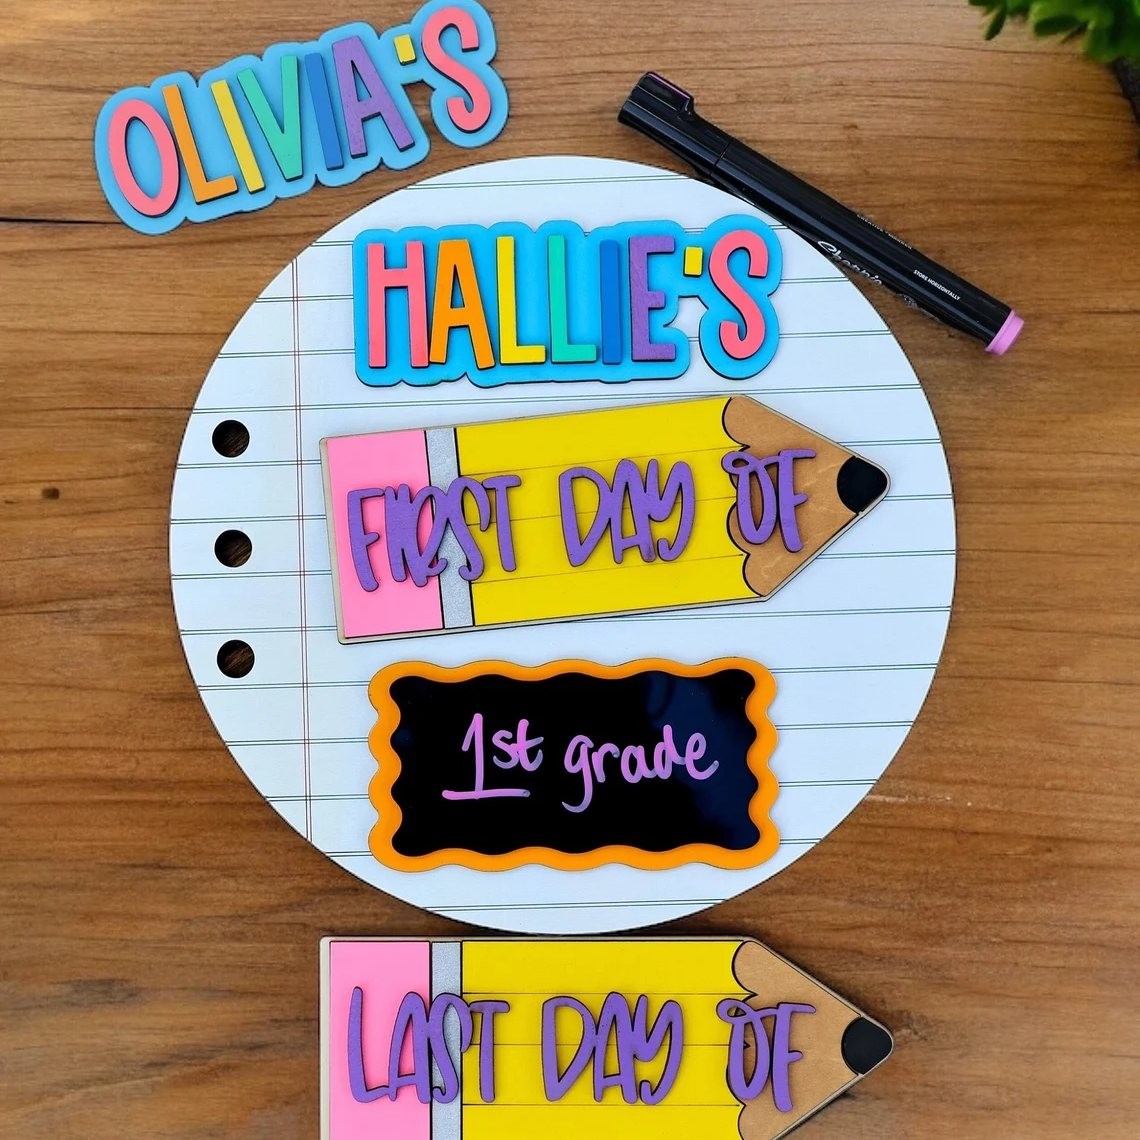 OLIVIA'S
HALLIE'S
FIRST DAY OF
1st grade
LAST DAY OF
Sharpie
CREATIVE MARKER
STORE HORIZONTALLY